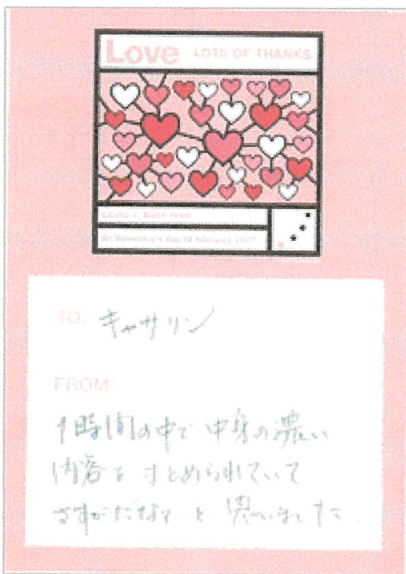 Love LOTS OF THANKS
TO: キャサリン
FROM:
1時間の中で中身の濃い
内容をまとめられていて
さすがだなぁと思いました